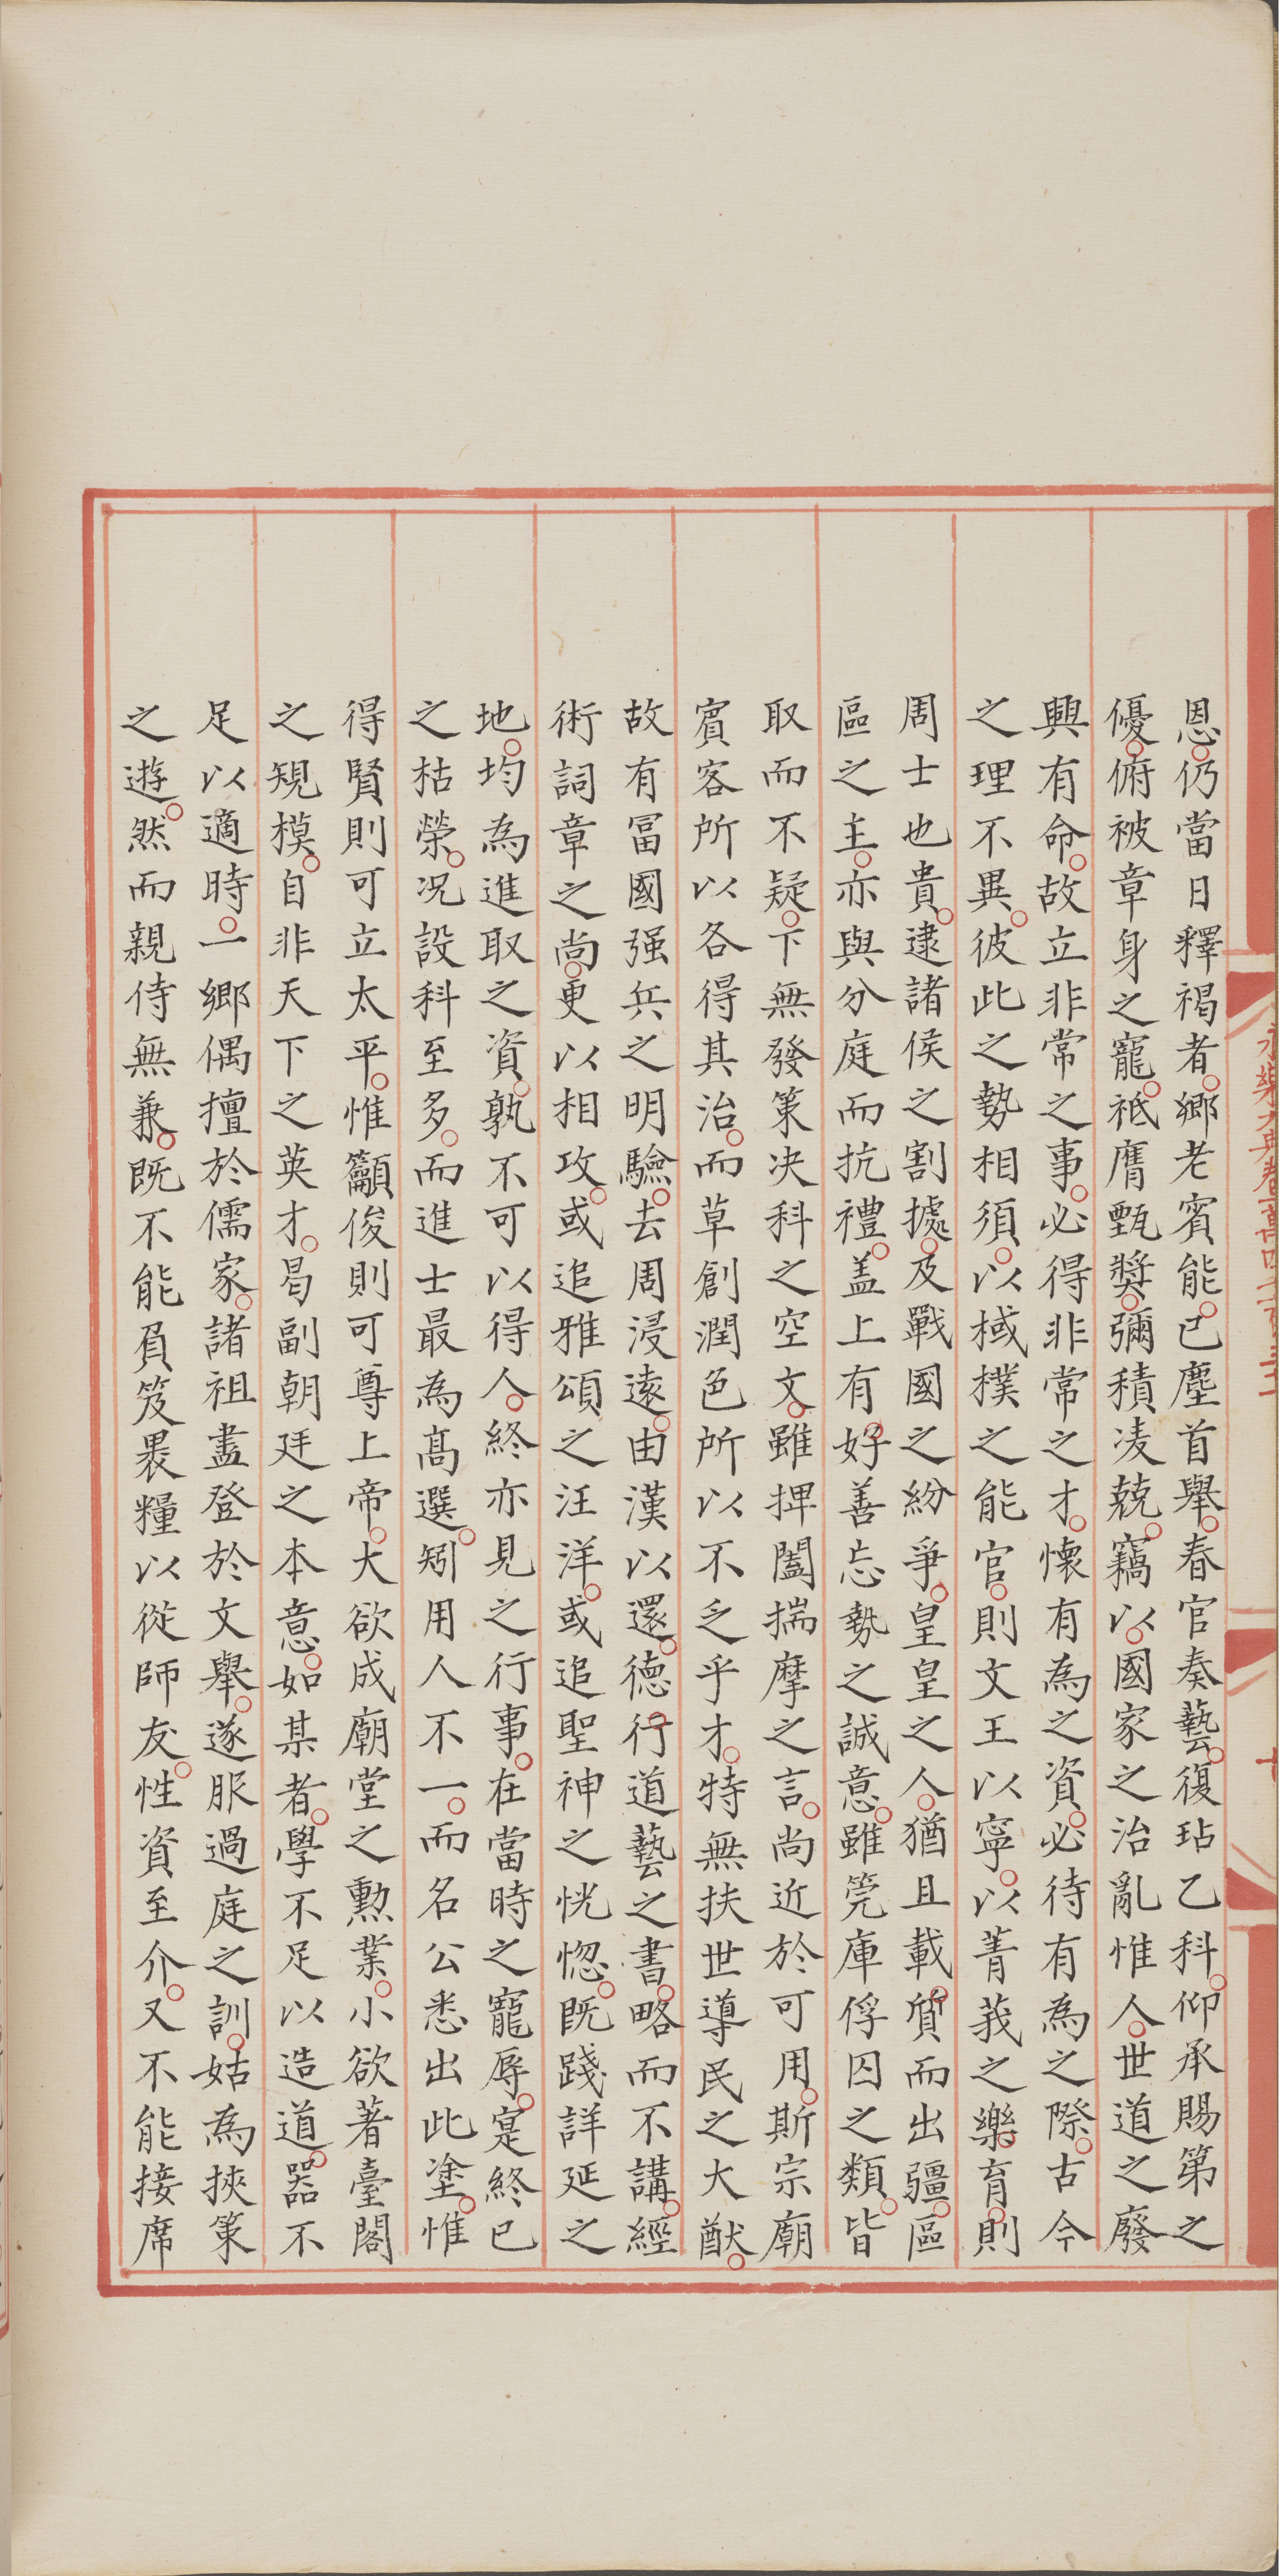 恩仍當日釋褐者鄉老賓能已塵首舉春官奏藝復玷乙科仰承賜第之
優俯被章身之寵祗膺甄獎彌積凌兢竊以國家之治亂惟人世道之廢
興有命故立非常之事必得非常之才懷有為之資必待有為之際古今
之理不異彼此之勢相須以棫樸之能官則文王以寧以菁莪之樂育則
周士也貴逮諸侯之割據及戰國之紛爭皇皇之人猶且載質而出疆區
區之主亦與分庭而抗禮盖上有好善忘勢之誠意雖筦庫俘囚之類皆
取而不疑下無發策决科之空文雖捭闔揣摩之言尚近於可用斯宗廟
賓客所以各得其治而草創潤色所以不乏乎才特無扶世導民之大猷
故有冨國强兵之明驗去周浸遠由漢以還德行道藝之書略而不講經
術詞章之尚更以相攻或追雅頌之汪洋或追聖神之恍惚既踐詳延之
地均為進取之資孰不可以得人終亦見之行事在當時之寵辱寔終已
之枯榮况設科至多而進士最為髙選矧用人不一而名公悉出此塗惟
得賢則可立太平惟籲俊則可尊上帝大欲成廟堂之勲業小欲著臺閣
之規模自非天下之英才曷副朝廷之本意如某者學不足以造道器不
足以適時一鄉偶擅於儒家諸祖盡登於文舉遂服過庭之訓姑為挾策
之遊然而親侍無兼既不能負笈褁糧以從師友性資至介又不能接席